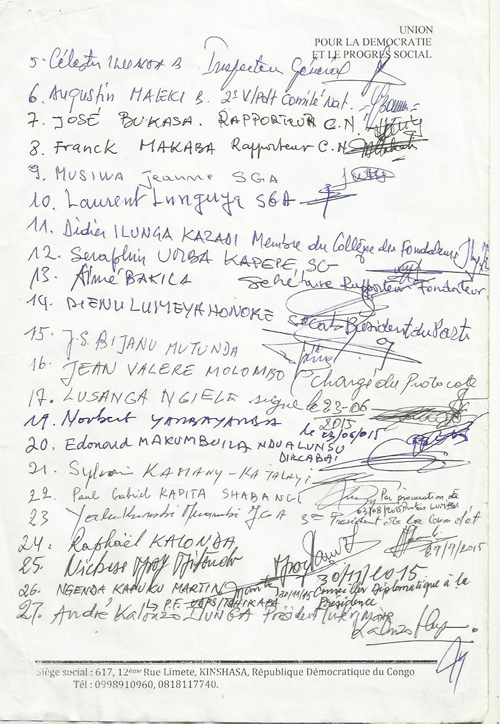 UNION
POUR LA DEMOCRATIE
ET LE PROGRES SOCIAL
5. Célestin ILUNGA B Inspecteur Général
6. Augustin MALEKI B. 2è V/Pdt Comité Nat.
7. JOSÉ BUKASA. RAPPORTEUR C.N.
8. Franck MAKABA Rapporteur C.N
9. MUSIWA Jeanne SGA
10. Laurent Lunguya SGA
11. Didier ILUNGA KAZADI Membre du Collège des Fondateurs
12. Seraphin UMBA KAPEPE, SG
13. Aimé BAKILA Secrétaire Rapporteur Fondateur
14. DIENU LUMEYA HONORE Président du Parti
15. J.S. BIJANU MUTUNDA
16. JEAN VALERE MOLOMBO Chargé du Protocole
17. LUSANGA NGIELE signé le 23-06
2015
19. Norbert YANBAYAMBA le 23/06/015
20. Edouard MAKUMBUILA NDUALUNSU
DIRCABAI
21. Sylvain KAMANY-KATALAYI
22. Paul Gabriel KAPITA SHABANGI Par procuration du
23 Président de la
24. Raphaël KALONDA 27/7/2015
25. 30/11/2015
26. NGENDA KAPUKU MARTIN 30/11/15 Conseiller Diplomatique à la
P.F. UDPS/TSHIKAPA Présidence
27. André Kalonzo ILUNGA Président
Siège social : 617, 12ème Rue Limete, KINSHASA, République Démocratique du Congo
Tél : 0998910960, 0818117740.